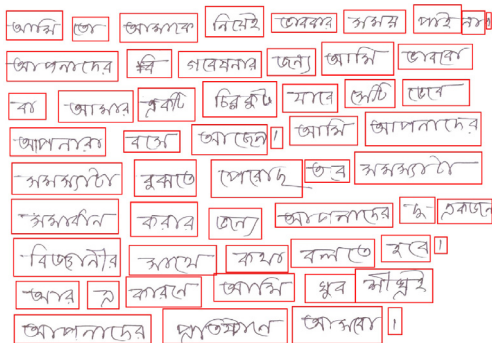 আমি তো আমাকে নিয়েই ভাববার সময় পাই না।
আপনাদের কি গবেষনার জন্য আমি ভাববো
বা আমার একটি চিরকুট যাবে সেটি ভেবে
আপনারা বসে আছেন। আমি আপনাদের
সমস্যাটা বুঝতে পেরেছি তবে সমস্যাটা
সমাধান করার জন্যে আপনাদের দু একজন
বিজ্ঞানীর সাথে কথা বলতে হবে।
আর এ কারনে আমি খুব শীঘ্রই
আপনাদের প্রতিষ্ঠানে আসবো।